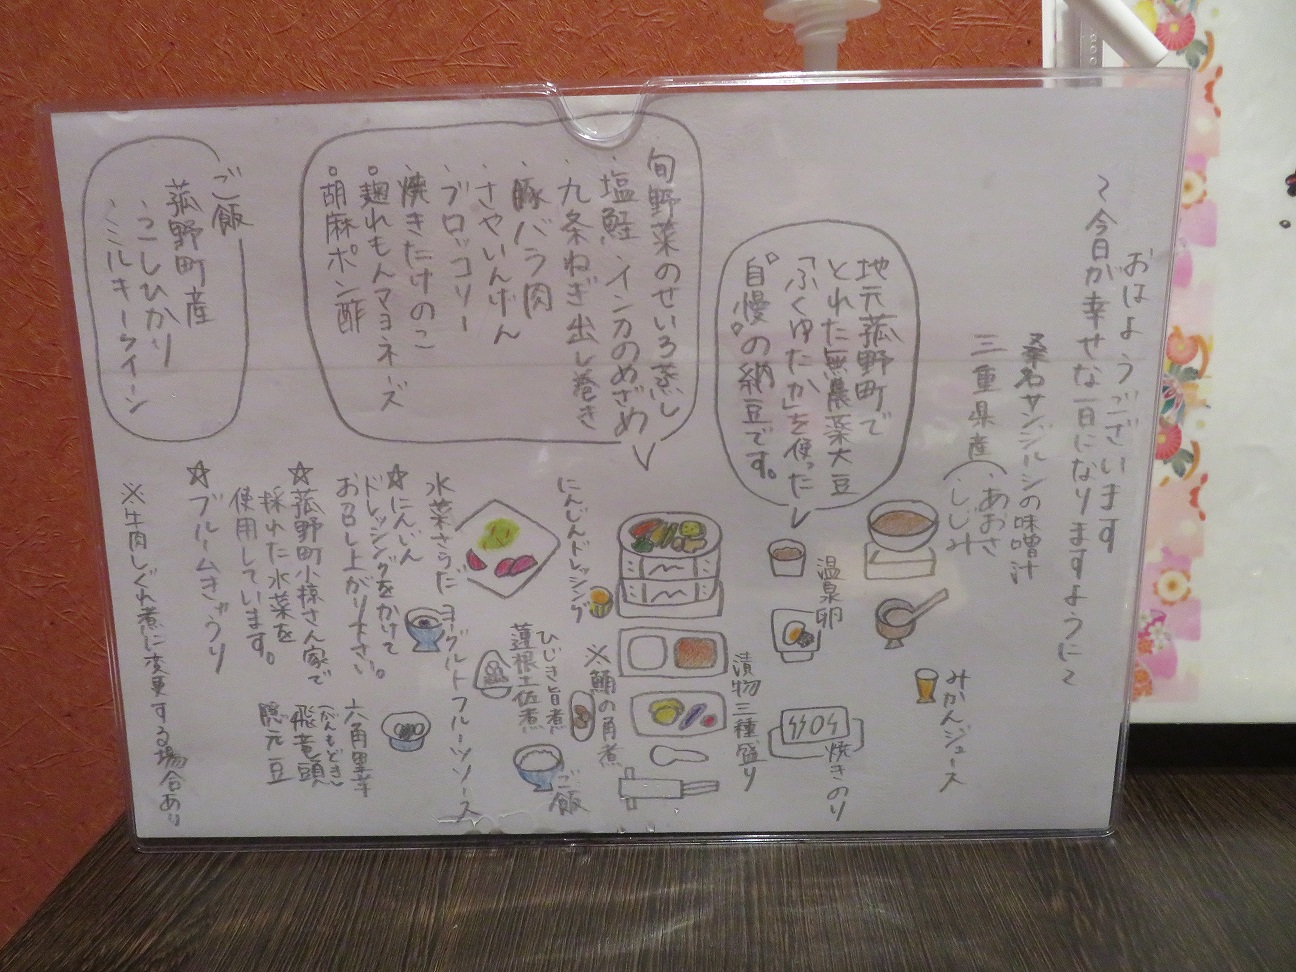 おはようございます
～今日が幸せな一日になりますように～
桑名サンジルシの味噌汁
三重県産（・あおさ
・しじみ
地元菰野町で
とれた無農薬大豆
「ふくゆたか」を使った
"自慢"の納豆です。
旬野菜のせいろ蒸し
・塩鮭 ・インカのめざめ
・九条ねぎ出し巻き
・豚バラ肉
・さやいんげん
・ブロッコリー
・焼きたけのこ
○麹れもんマヨネーズ
○胡麻ポン酢
ご飯
菰野町産
・こしひかり
・ミルキークイーン
みかんジュース
温泉卵
焼きのり
漬物三種盛り
にんじんドレッシング
※鮪の角煮
ひじき旨煮
蓮根土佐煮
ご飯
ヨーグルトフルーツソース
水菜さらだ
☆にんじん
ドレッシングをかけて
お召し上がり下さい。
☆菰野町小様さん家で
採れた水菜を
使用しています。
☆ブルームきゅうり
六角里芋
（がんもどき）
飛竜頭
隠元豆
※牛肉しぐれ煮に変更する場合あり